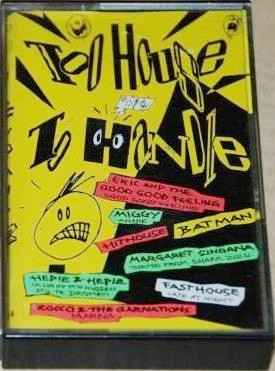 Too House
To Handle
ERIC AND THE
GOOD GOOD FEELING
GOOD GOOD FEELING
MIGGY
ANNIE
HITHOUSE
BATMAN
MARGARET SINGANA
THEME FROM SHAKA ZULU
HEDIE & HEPIE
FASTHOUSE
LATE AT NIGHT
ROCCO & THE CARNATIONS
MARINA